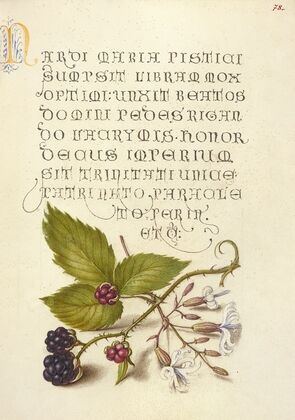 78.
NARDI MARIA PISTICI
SUMPSIT LIBRAM MOX
OPTIMI: UNXIT BEATOS
DOMINI PEDES RIGAN
DO LACRYMIS. HONOR
DECUS IMPERIUM
SIT TRINITATI UNICE
PATRI NATO, PARACLE
TO. PERIN
ETC: